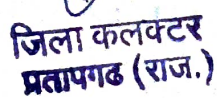 जिला कलक्टर
प्रतापगढ (राज.)